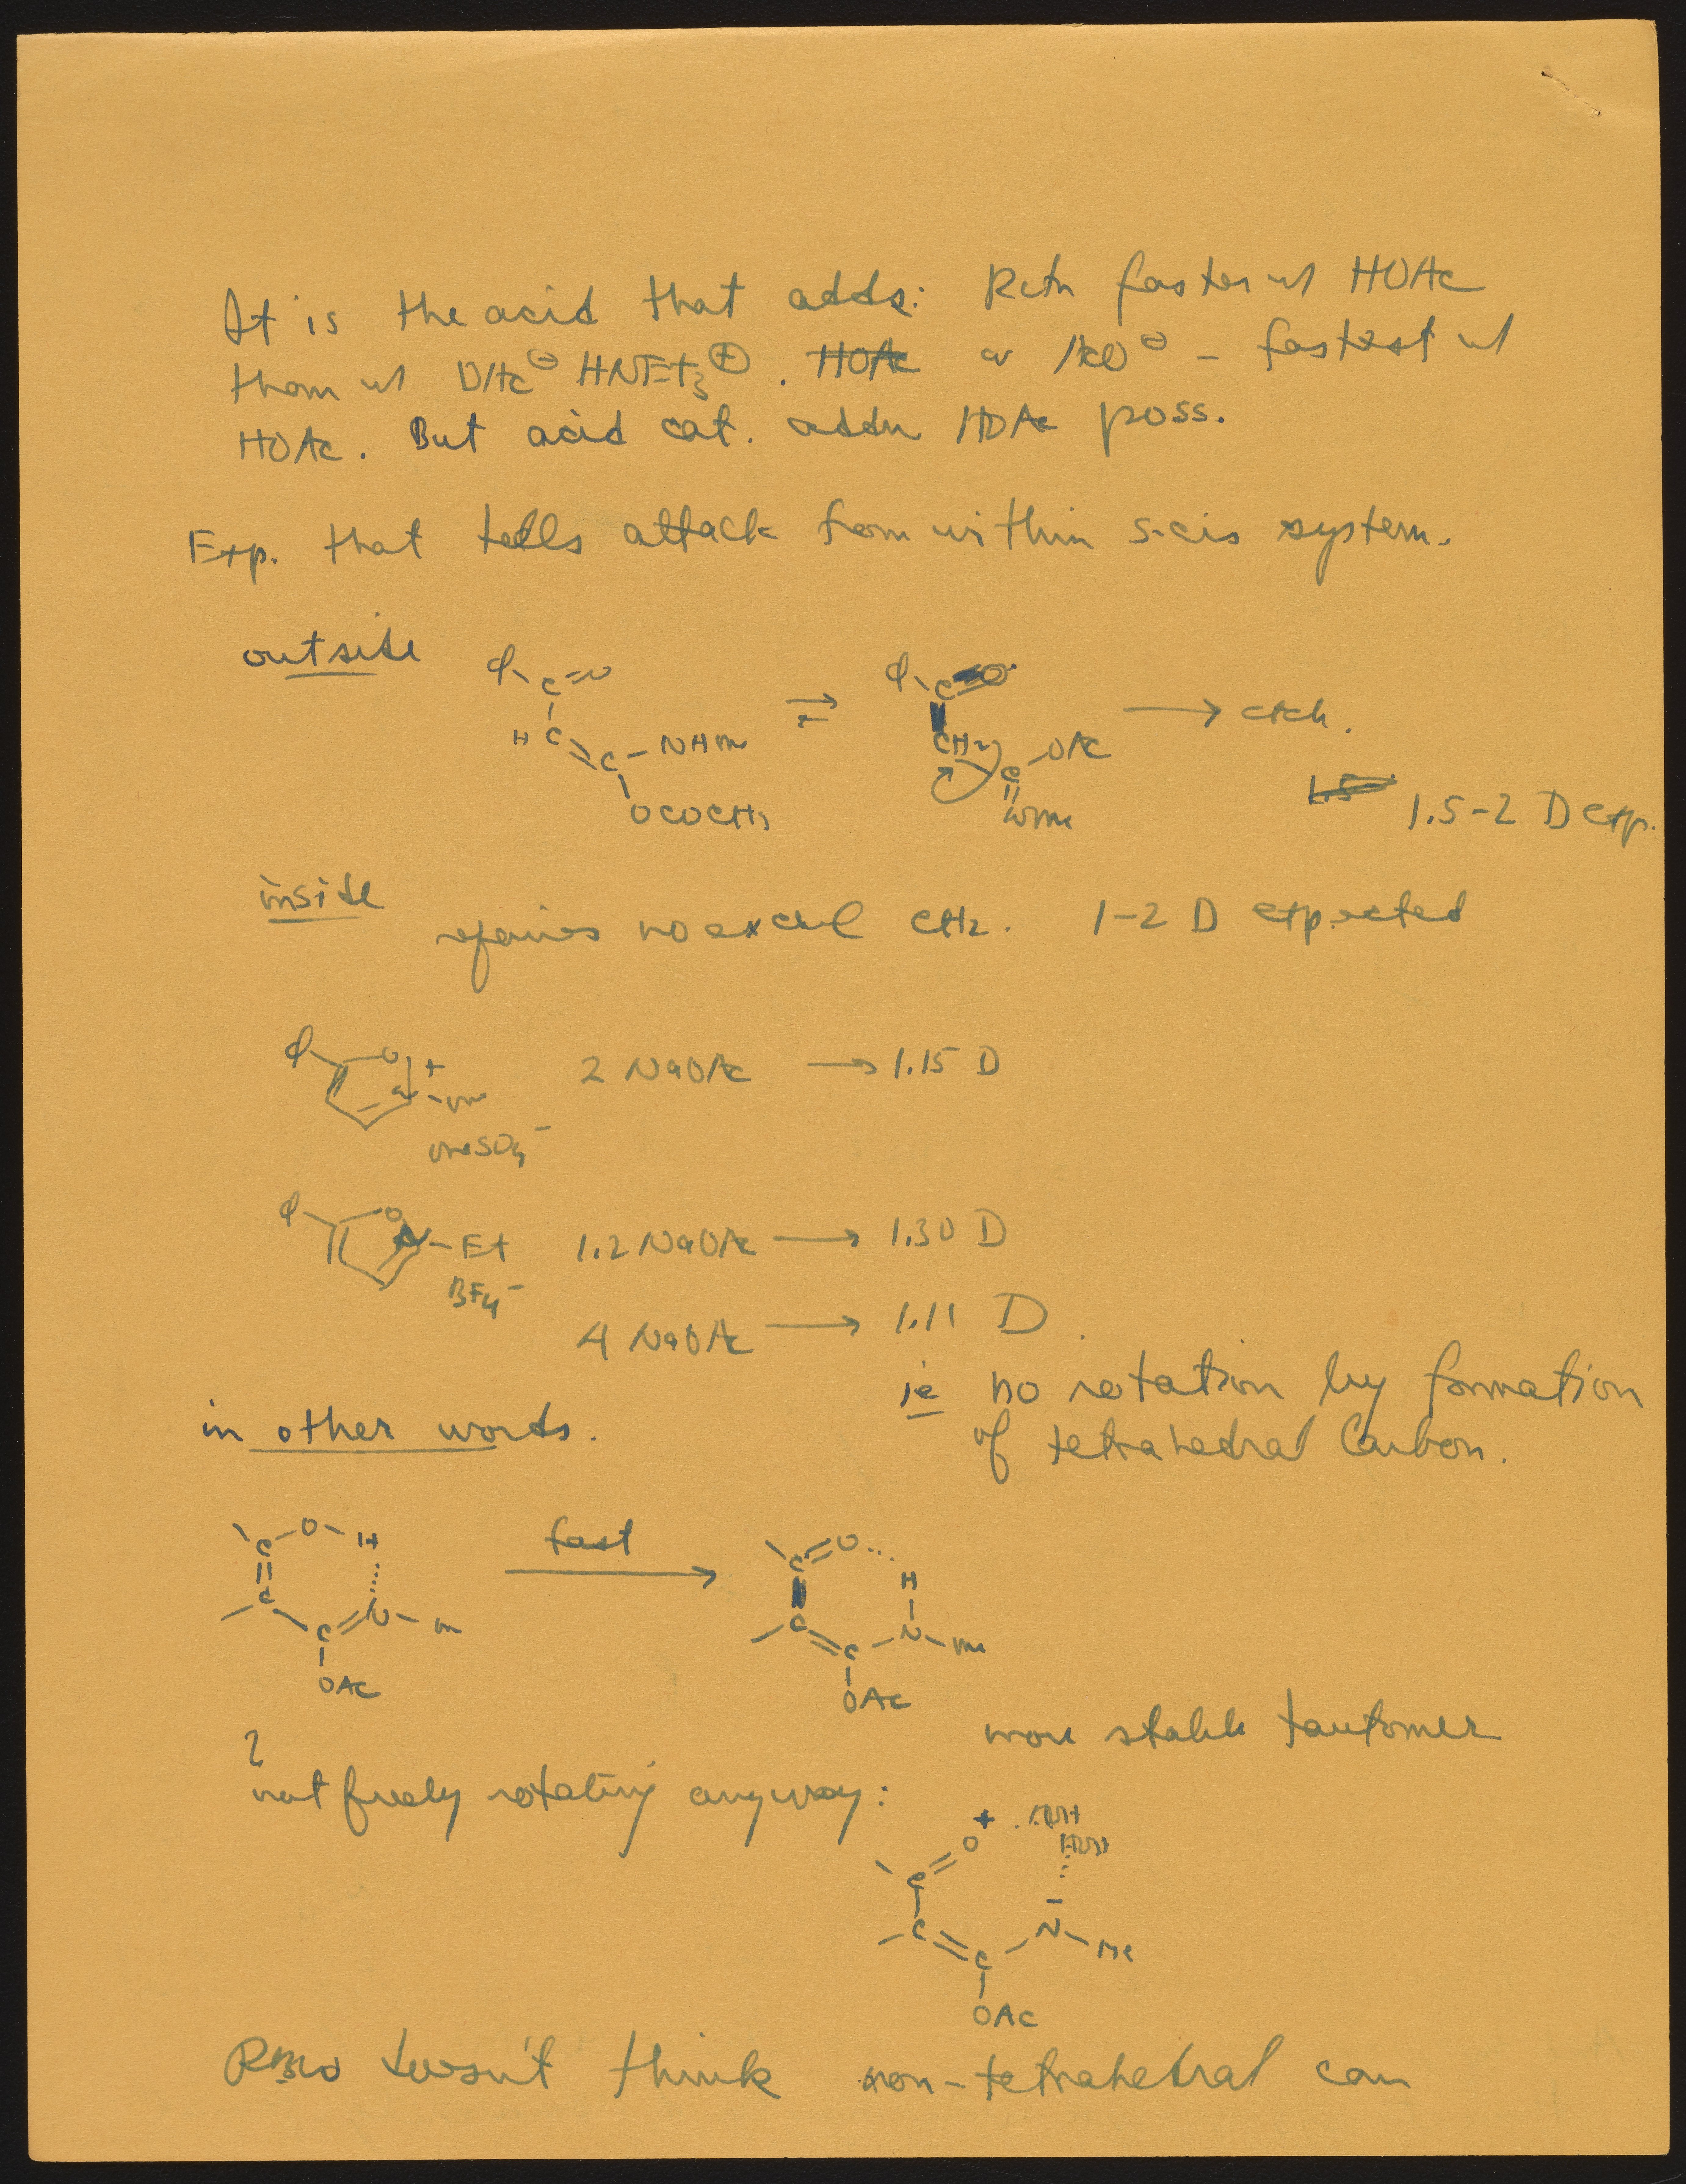 It is the acid that adds: Rctn faster w/ HOAc
than w/ OAc⊖ HNEt₃⊕. HOAc or AcO⊖ - fastest w/
HOAc. But acid cat. addn HOAc poss.
Exp. that tells attack from within s-cis system.
outside
φ C=O
H C = C - NHMe
OCOCH₃
⇌
φ C=O
CH₂
C - OAc
NMe
→ etch.
1.5 1.5-2 D exp.
inside
requires no excl CH₂. 1-2 D expected
φ O + N-Me
MeSO₄⁻
2 NaOAc → 1.15 D
φ O N-Et
BF₄⁻
1.2 NaOAc → 1.30 D
4 NaOAc → 1.11 D.
ie no rotation by formation
of tetrahedral Carbon.
in other words.
C-O-H
C
C=N-Me
OAc
fast →
C=O...H
C
C-N-Me
OAc
more stable tautomer
?
not freely rotating anyway:
+
C=O
C=C-N-Me
OAc
doesn't think non-tetrahedral can